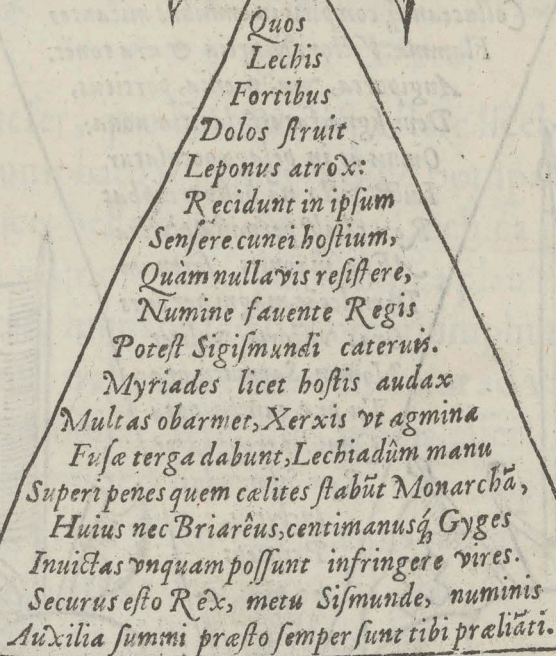 Quos
Lechis
Fortibus
Dolos ſtruit
Leponus atrox:
Recidunt in ipſum
Senſêre cunei hoſtium,
Quàm nulla vis reſiſtere,
Numine fauente Regis
Poteſt Sigiſmundi cateruis.
Myriades licet hoſtis audax
Multas obarmet, Xerxis vt agmina
Fuſæ terga dabunt, Lechiadûm manu
Superi penes quem cælites ſtabũt Monarchã,
Huius nec Briarêus, centimanusq́ꝫ Gyges
Invictas vnquam poſſunt infringere vires.
Securus eſto Rêx, metu Siſmunde, numinis
Auxilia ſummi præſto ſemper ſunt tibi præliãti.